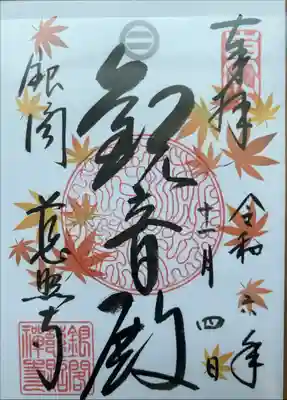 奉拝
令和六年
十一月四日
観音殿
銀閣
慈照寺
銀閣
慈照
禅寺